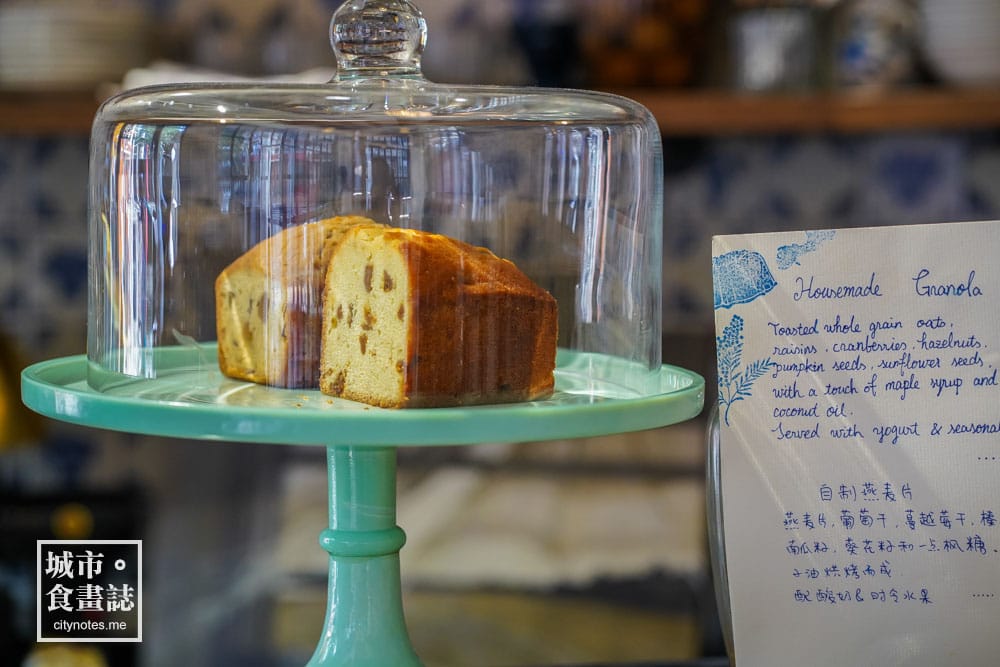 Housemade Granola
Toasted whole grain oats,
raisins, cranberries, hazelnuts,
pumpkin seeds, sunflower seeds,
with a touch of maple syrup and
coconut oil.
Served with yogurt & seasonal
.....
自制燕麦片
燕麦片,葡萄干,蔓越莓干,榛
南瓜籽,葵花籽和一点枫糖、
子油烘烤而成
配酸奶&时令水果
.....
城市。
食畫誌
citynotes.me